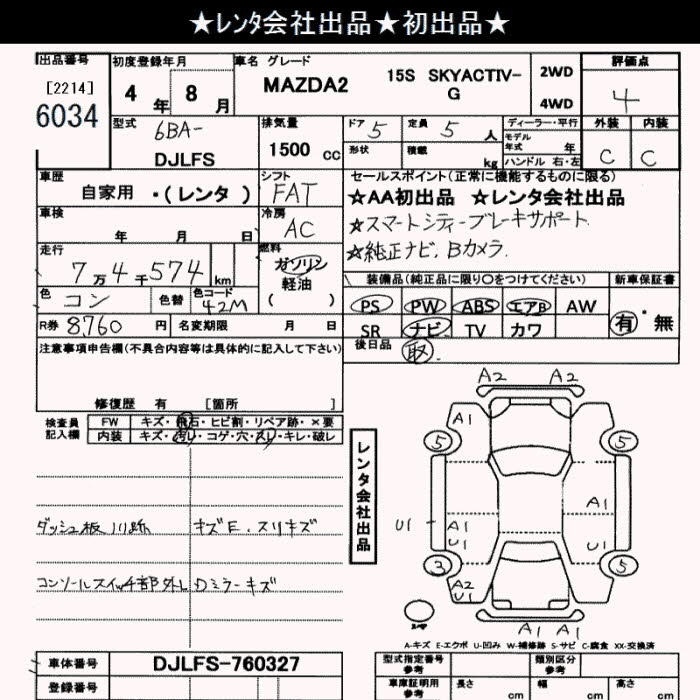 ★レンタ会社出品★初出品★
出品番号 初度登録年月 車名 グレード 評価点
[2214]
6034
4 年 8 月
MAZDA2 15S SKYACTIV-G
2WD
4WD
4
型式 6BA-
DJLFS
排気量
1500 cc
ドア 5 定員 5 人
形状 積載 kg
ディーラー・平行
モデル年式 年
ハンドル 右・左
外装 内装
C C
車歴
自家用 ・(レンタ)
シフト
FAT
セールスポイント(正常に機能するものに限る)
★AA初出品 ★レンタ会社出品
☆スマートシティーブレーキサポート
☆純正ナビ、Bカメラ
車検 年 月 日
冷房
AC
走行
7万4千574 km
燃料
ガソリン
軽油
( )
色 コン 色替 色コード 42M
装備品(純正品に限り○をつけてください) 新車保証書
PS PW ABS エアB AW
SR ナビ TV カワ
有・無
R券 8,760 円 名変期限 月 日
後日品 取
注意事項申告欄(不具合内容等は具体的に記入して下さい)
修復歴 有 [箇所 ]
検査員記入欄
FW キズ・飛石・ヒビ割・リペア跡・×要
内装 キズ・汚レ・コゲ・穴・スレ・キレ・破レ
ダッシュ板 ハリ跡 キズE、スリキズ
コンソールスイッチ部外し Dミラーキズ
レンタ会社出品
A2 A2
A1
5 5
A1
U1 A1
U1 U1
3 5
A2
U1
A1 A1
A-キズ E-エクボ U-凹み W-補修跡 S-サビ C-腐食 XX-交換済
車体番号 DJLFS-760327
登録番号
型式指定番号 参考 類別区分 参考
車庫証明用 参考 長さ cm 幅 cm 高さ cm